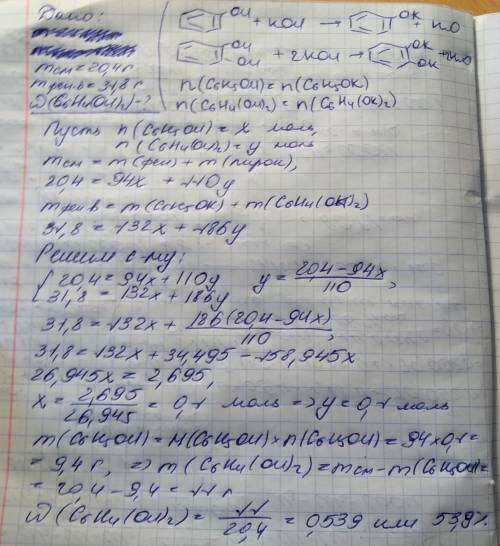 Дано:
mсм = 20,4 г
mреш в = 31,8 г
ω(C6H4(OH)2) - ?
OH + KOH → OK + H2O
OH OH + 2KOH → OK OK + 2H2O
n(C6H5OH) = n(C6H5OK)
n(C6H4(OH)2) = n(C6H4(OK)2)
Пусть n(C6H5OH) = x моль,
n(C6H4(OH)2) = y моль
mсм = m(фен) + m(пирок),
20,4 = 94x + 110y
m в = m(C6H5OK) + m(C6H4(OK)2)
31,8 = 132x + 186y
Решим с-му:
{ 20,4 = 94x + 110y y = 20,4 - 94x / 110,
31,8 = 132x + 186y
31,8 = 132x + 186(20,4 - 94x) / 110,
31,8 = 132x + 34,495 - 158,945x
26,945x = 2,695,
x = 2,695 / 26,945 = 0,1 моль => y = 0,1 моль
m(C6H5OH) = M(C6H5OH) × n(C6H5OH) = 94 × 0,1 =
= 9,4 г, => m(C6H4(OH)2) = mсм - m(C6H5OH) =
= 20,4 - 9,4 = 11 г
ω(C6H4(OH)2) = 11 / 20,4 = 0,539 или 53,9%